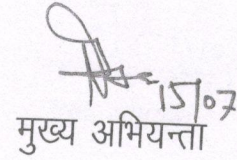 15/07
मुख्य अभियन्ता